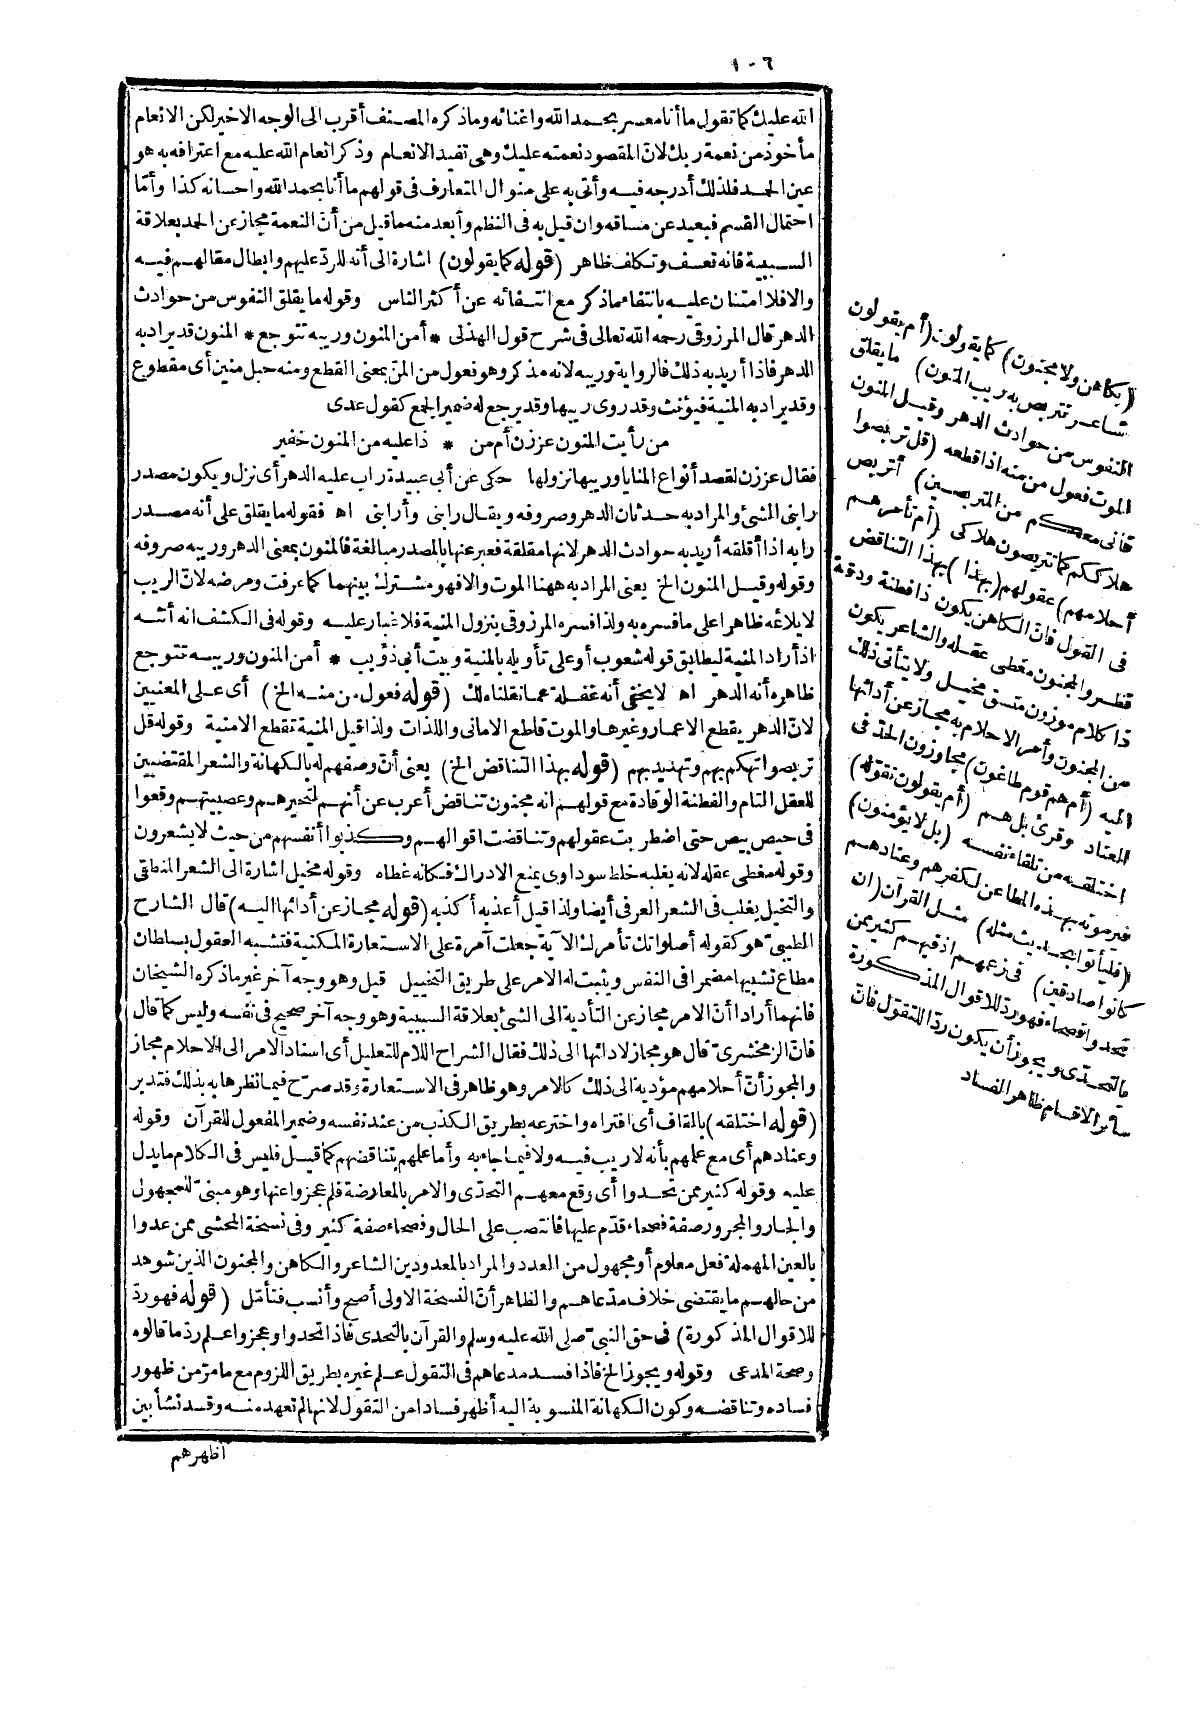 ١٠٦
الله عليك كما تقول ما أنا معسر بحمد الله واغنائه وما ذكره المصنف أقرب الى الوجه الاخير لكن الانعام
مأخوذ من نعمة ربك لانّ المقصود نعمته عليك وهى تفيد الانعام وذكر انعام الله عليه مع اعترافه به هو
عين الحمد فلذلك أدرجه فيه وأتى به على منوال المتعارف فى قولهم ما أنا بحمد الله واحسانه كذا وأمّا
احتمال القسم فبعيد عن مساقه وان قيل به فى النظم وأبعد منه ما قيل من أنّ النعمة مجاز عن الحمد بعلاقة
السببية فانه تعسف وتكلف ظاهر (قوله كما يقولون) اشارة الى أنه للردّ عليهم وابطال مقالهم فيه
والا فلا امتنان عليه بانتفاء ما ذكر مع انتفائه عن أكثر الناس وقوله ما يقلق النفوس من حوادث
الدهر قال المرزوقى رحمه الله تعالى فى شرح قول الهذلى * أمن المنون وريبه تتوجع * المنون قد يراد به
الدهر فاذا أريد به ذلك فالرواية وريبه لانه مذكر وهو فعول من المنّ بمعنى القطع ومنه حبل منين أى مقطوع
وقد يراد به المنية فيؤنث وقد روى ريبها وقد يرجع له ضمير الجمع كقول عدى
من رأيت المنون عززن أم من * ذا عليه من المنون خفير
فقال عززن لقصد أنواع المنايا وريبها نزولها حكى عن أبى عبيدة راب عليه الدهر أى نزل ويكون مصدر
رابنى الشئ والمراد به حدثان الدهر وصروفه ويقال رابنى وأرابنى اه فقوله ما يقلق على أنه مصدر
رابه اذا أقلقه أريد به حوادث الدهر لانها مقلقة فعبر عنها بالمصدر مبالغة فالمنون بمعنى الدهر وريبه صروفه
وقوله وقيل المنون الخ يعنى المراد به ههنا الموت والا فهو مشترك بينهما كما عرفت ومرضه لانّ الريب
لا يلائمه ظاهرا على ما فسره به ولذا فسره المرزوقى بنزول المنية فلا غبار عليه وقوله فى الكشف انه أنثه
اذ أراد المنية ليطابق قوله شعوب أو على تأويله بالمنية وبيت أبى ذؤيب * أمن المنون وريبه تتوجع
ظاهره أنه الدهر اه لا يخفى أنه غفلة عما نقلناه لك (قوله فعول من منه الخ) أى على المعنيين
لانّ الدهر يقطع الاعمار وغيرها والموت قاطع الامانى واللذات ولذا قيل المنية تقطع الامنية وقوله قل
تربصوا تهكم بهم وتهديد لهم (قوله بهذا التناقض الخ) يعنى أنّ وصفهم له بالكهانة والشعر المقتضيين
للعقل التام والفطنة الوقادة مع قولهم انه مجنون تناقض أعرب عن أنهم لتحيرهم وعصبيتهم وقعوا
فى حيص بيص حتى اضطربت عقولهم وتناقضت اقوالهم وكذبوا أنفسهم من حيث لا يشعرون
وقوله مغطى عقله لانه يغلبه خلط سوداوى يمنع الادراك فكانه غطاه وقوله مخيل اشارة الى الشعر المنطقى
والتخيل يغلب فى الشعر العرفى أيضا ولذا قيل أعذبه أكذبه (قوله مجاز عن أدائها اليه) قال الشارح
الطيبى هو كقوله أصلواتك تأمرك الآية جعلت آمرة على الاستعارة المكنية فتشبه العقول بسلطان
مطاع تشبيها مضمرا فى النفس ويثبت له الامر على طريق التخييل قيل وهو وجه آخر غير ما ذكره الشيخان
فانهما أرادا أنّ الامر مجاز عن التأدية الى الشئ بعلاقة السببية وهو وجه آخر صحيح فى نفسه وليس كما قال
فانّ الزمخشرىّ قال هو مجاز لادائها الى ذلك فقال الشراح اللام للتعليل أى اسناد الامر الى الاحلام مجاز
والمجوز أنّ أحلامهم مؤدية الى ذلك كالامر وهو ظاهر فى الاستعارة وقد صرّح فيما نظر ها به بذلك فتدبر
(قوله اختلقه) بالقاف أى افتراه واخترعه بطريق الكذب من عند نفسه وضمير المفعول للقرآن وقوله
وعنادهم أى مع علمهم بأنه لا ريب فيه ولا فيما جاء به وأما علمهم بتناقضهم كما قيل فليس فى الكلام ما يدل
عليه وقوله كثير ممن تحدوا أى وقع معهم التحدّى والامر بالمعارضة فلم عجزوا عنها وهو مبنىّ للمجهول
والجار والمجرور صفة فصحاء قدّم عليها فانتصب على الحال وفصحاء صفة كثير وفى نسخة المحشى ممن عدوا
بالعين المهملة فعل معلوم أو مجهول من العدد والمراد بالمعدودين الشاعر والكاهن والمجنون الذين شوهد
من حالهم ما يقتضى خلاف مدعاهم والظاهر أنّ النسخة الاولى أصح وأنسب فتأمّل (قوله فهو ردّ
للاقوال المذكورة) فى حق النبىّ صلى الله عليه وسلم والقرآن بالتحدى فاذا تحدوا وعجزوا علم ردّ ما قالوه
وصحة المدعى وقوله ويجوز الخ فاذا فسد مدعاهم فى التقول علم غيره بطريق اللزوم مع ما مرّ من ظهور
فساده وتناقضه وكون الكهانة المنسوبة اليه أظهر فسادا من التقول لانها لم تعهد منه وقد نشأ بين
اظهرهم
(بكاهن ولا مجنون) كما يقولون (أم يقولون
شاعر نتربص به ريب المنون) ما يقلق
النفوس من حوادث الدهر وقيل المنون
الموت فعول من منه اذا قطعه (قل تربصوا
فانى معكم من المتربصين) أتربص
هلاككم كما تتربصون هلاكى (أم تأمرهم
أحلامهم) عقولهم (بهذا) بهذا التناقض
فى القول فانّ الكاهن يكون ذا فطنة ودقة
نظر والمجنون مغطى عقله والشاعر يكون
ذا كلام موزون متسق مخيل ولا يتأتى ذلك
من المجنون وأمر الاحلام به مجاز عن أدائها
اليه (أم هم قوم طاغون) مجاوزون الحدّ فى
العناد وقرئ بل هم (أم يقولون تقوّله)
اختلقه من تلقاء نفسه (بل لا يؤمنون)
فيرمونه بهذه المطاعن لكفرهم وعنادهم
(فليأتوا بحديث مثله) مثل القرآن (ان
كانوا صادقين) فى زعمهم اذ فيهم كثير ممن
تحدوا فصحاء فهو ردّ للاقوال المذكورة
بالتحدّى ويجوز أن يكون ردّا للتقوّل فانّ
سائر الاقسام ظاهر الفساد